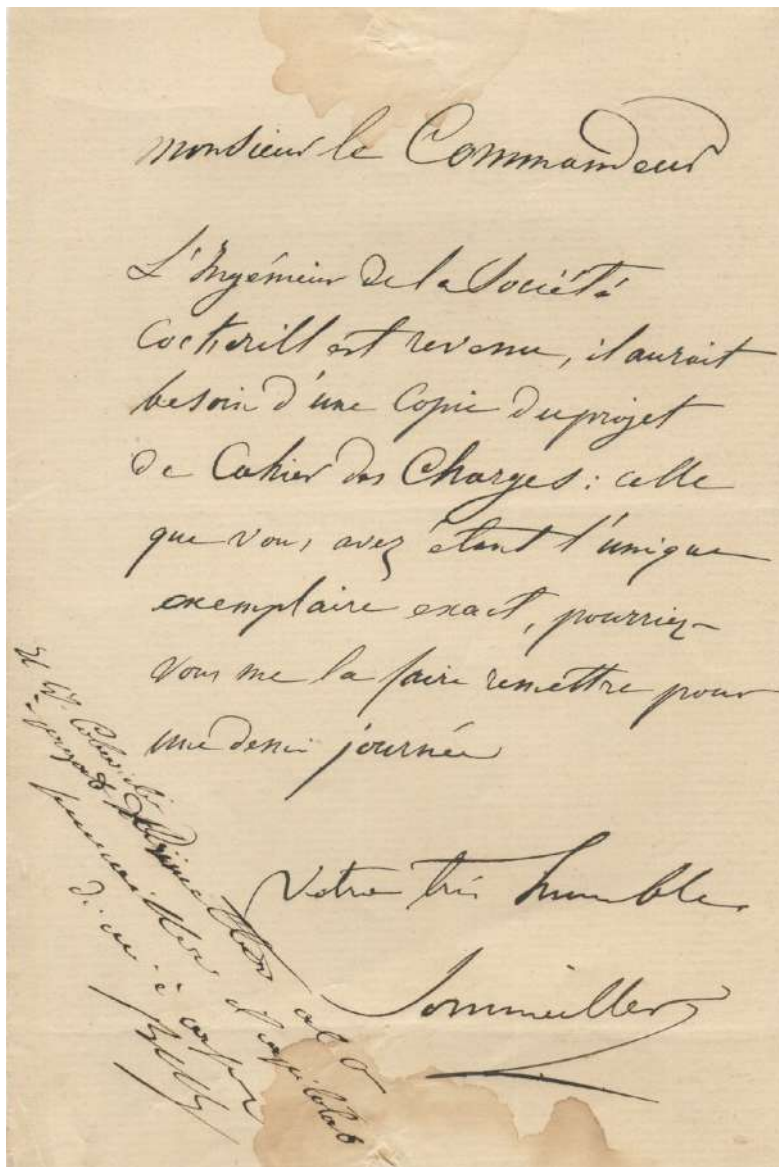 monsieur le Commandeur
L'Ingénieur de la Société
Cockerill est revenu, il aurait
besoin d'une Copie du projet
de Cahier des Charges : celle
que vous avez étant l'unique
exemplaire exact, pourriez-
vous me la faire remettre pour
une demi journée
Votre très humble
Sommeiller